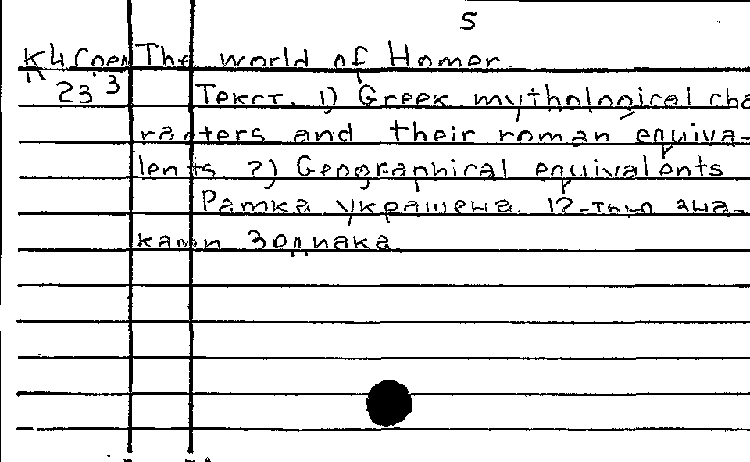 5
К4 Сред The world of Homer
23 3 Текст. 1) Greek mythological cha
racters and their roman equiva-
lents 2) Geographical equivalents
Рамка украшена 12-тью зна-
ками Зодиака